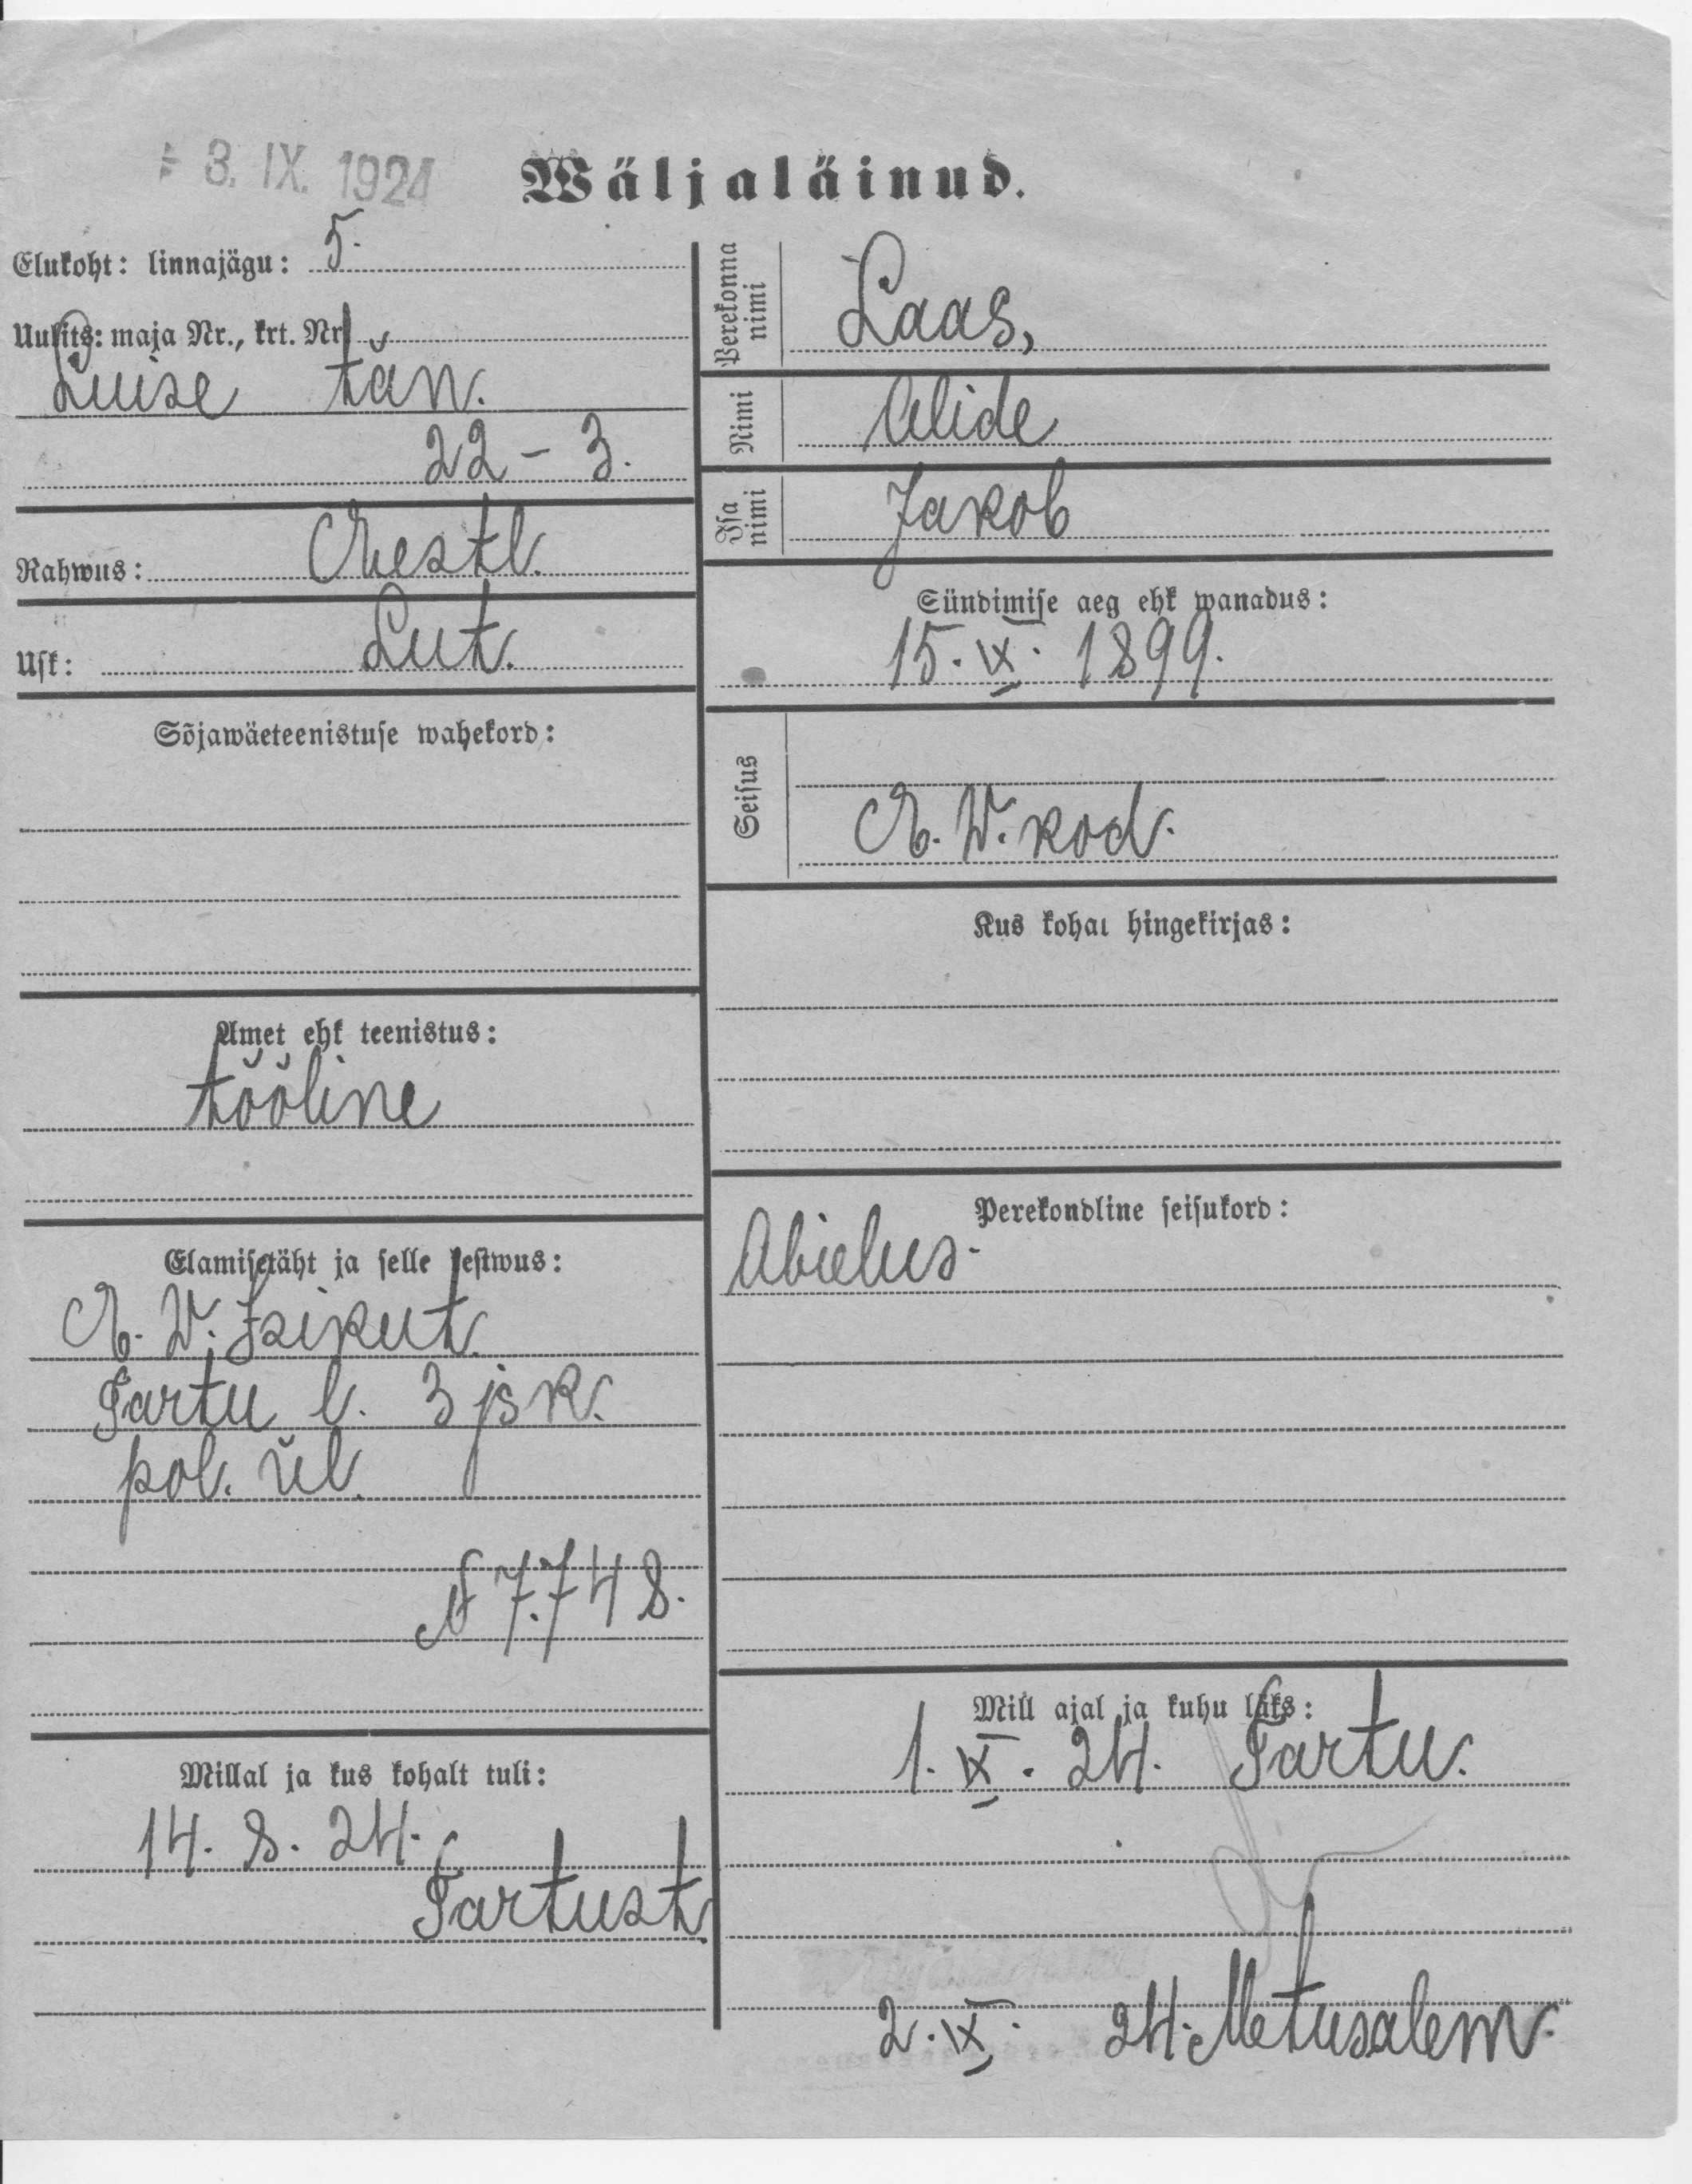 3. IX. 1924
Wäljaläinud.
Elukoht: linnajägu: 5.
Uulits: maja Nr., krt. Nr.
Luise tän.
22 - 3.
Rahwus: Eestl.
Usk: Lut.
Sõjawäeteenistuse wahekord:
Amet ehk teenistus:
tööline
Elamisetäht ja selle kestwus:
E. W. Isikut.
Tartu l. 3 jsk.
pol. ül.
№ 7.748.
Millal ja kus kohalt tuli:
14. 8. 24.
Tartust
Perekonna nimi Laas,
Nimi Alide
Isa nimi Jakob
Sündimise aeg ehk wanadus:
15. IX. 1899.
Seisus
E. W. kod.
Kus kohal hingekirjas:
Perekondline seisukord:
Abielus.
Mill ajal ja kuhu läks:
1. IX. 24. Tartu.
2. IX. 24. Metusalem.